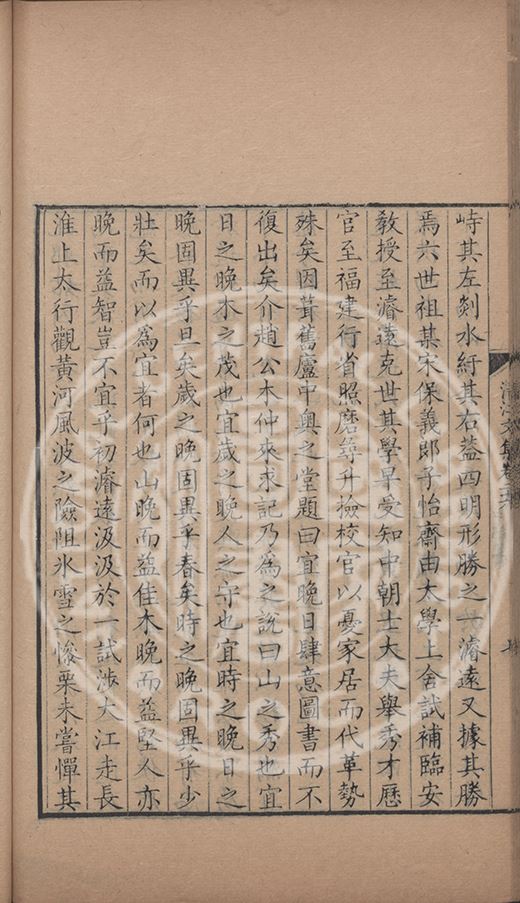 峙其左剡水紆其右葢四明形勝之一濬遠又據其勝
焉六世祖某宋保義郎子怡齋由太學上舍試補臨安
教授至濬遠克世其學早受知中朝士大夫舉秀才歷
官至福建行省照磨尋升檢校官以憂家居而代革勢
殊矣因葺舊廬中奥之堂題曰宜晚日肆意圖書而不
復出矣介趙公本仲來求記乃為之說曰山之秀也宜
日之晚木之茂也宜歲之晚人之守也宜時之晚日之
晚固異乎旦矣歲之晚固異乎春矣時之晚固異乎少
壯矣而以為宜者何也山晚而益佳木晚而益堅人亦
晚而益智豈不宜乎初濬遠汲汲於一試涉大江走長
淮上太行觀黃河風波之險阻氷雪之慘栗未嘗憚其